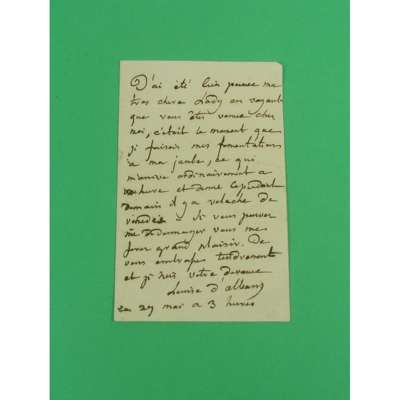 J'ai été bien peinée ma
tres chere Lady en voyant
que vous étiez venue chez
moi, c'était le moment que
je faisois mes fomentations
a ma jambe, ce qui
m'arrive ordinairement a
heure et demie cependant
demain il y a relache de
Si vous pouvez
me dedomager vous me
ferez grand plaisir. Je
vous embrasse tendrement
et je suis votre devouée
Louise d'albany
ce 29 mai a 3 heures